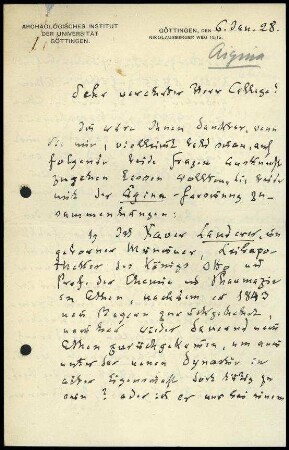 ARCHÄOLOGISCHES INSTITUT
DER UNIVERSITÄT
GÖTTINGEN.
GÖTTINGEN, DEN 6. Jan. 28.
NIKOLAUSBERGER WEG
Aigina
Sehr verehrter Herr Collega!
Ich wäre Ihnen dankbar, wenn
Sie mir, vielleicht bald schon, auf
folgende beide Fragen Auskunft
zugehen lassen wollten, die beide
mit der Ägina Forschung zu-
sammenhängen:
1) Ist Xaver Landerer, ein
geborner Münchner, Leibapo-
theker des Königs Otto und
Prof. der Chemie und Pharmazie
in Athen, nachdem er 1843
nach Bayern zurückgekehrt,
nachher wieder dauernd nach
Athen zurückgekommen, um auch
unter der neuen Dynastie in
alter Eigenschaft dort tätig zu
sein? oder ist er nur bei einem